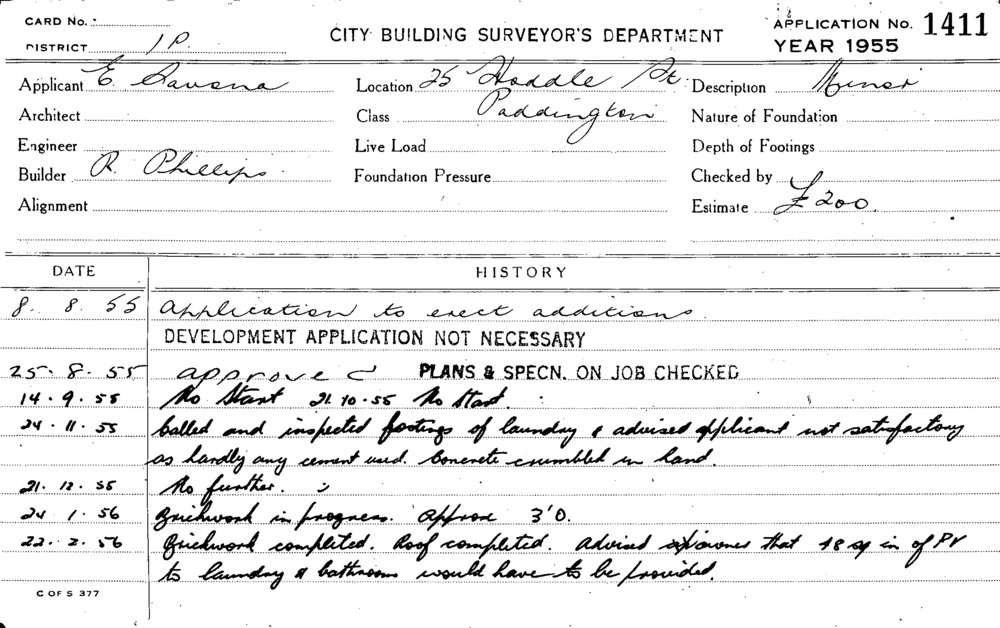 CARD No.
DISTRICT 1P.
CITY BUILDING SURVEYOR'S DEPARTMENT
APPLICATION No. 1411
YEAR 1955
Applicant E.
Location 25 Hoddle St.
Description Minor
Architect
Class Paddington
Nature of Foundation
Engineer
Live Load
Depth of Footings
Builder R. Phillips.
Foundation Pressure
Checked by
Alignment
Estimate £200.
DATE
HISTORY
8. 8. 55 Application to erect additions.
DEVELOPMENT APPLICATION NOT NECESSARY
25. 8. 55 approved PLANS & SPECN. ON JOB CHECKED
14. 9. 55 No Start 21. 10. 55 No Start
24. 11. 55 Called and inspected footings of laundry & advised applicant not satisfactory
as hardly any cement used. Concrete crumbled in hand.
21. 12. 55 No further.
24. 1. 56 Brickwork in progress. Approx 3'0.
22. 2. 56 Brickwork completed. Roof completed. Advised owner that 48 sq in of PV
to laundry & bathroom would have to be provided.
C OF S 377